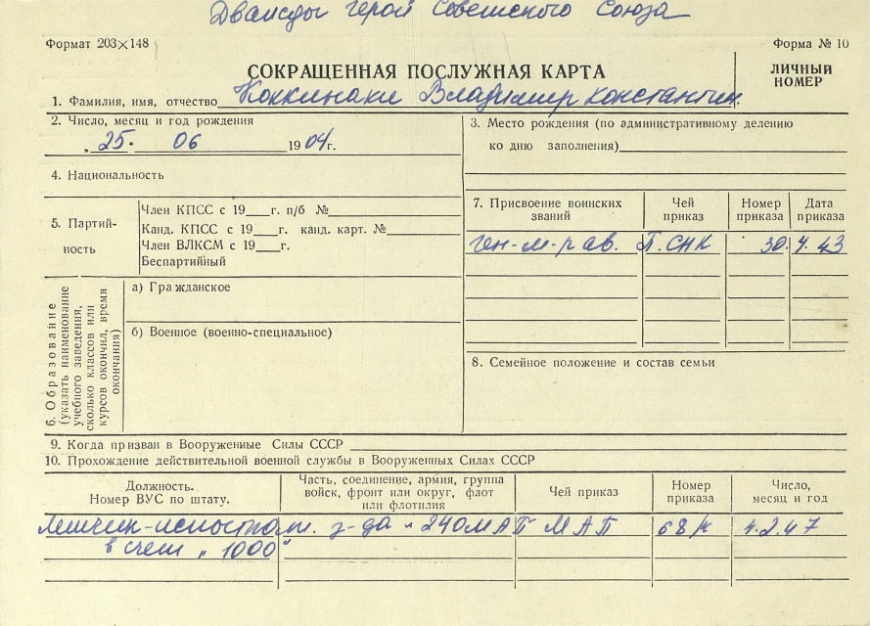 Дважды Герой Советского Союза
Формат 203×148
Форма № 10
СОКРАЩЕННАЯ ПОСЛУЖНАЯ КАРТА
ЛИЧНЫЙ
НОМЕР
1. Фамилия, имя, отчество Коккинаки Владимир Константин.
2. Число, месяц и год рождения
„25." 06 1904г.
3. Место рождения (по административному делению
ко дню заполнения)
4. Национальность
5. Партий-
ность
Член КПСС с 19 г. п/б №
Канд. КПСС с 19 г. канд. карт. №
Член ВЛКСМ с 19 г.
Беспартийный
6. Образование
(указать наименование
учебного заведения,
сколько классов или
курсов окончил, время
окончания)
а) Гражданское
б) Военное (военно-специальное)
7. Присвоение воинских
званий
Чей
приказ
Номер
приказа
Дата
приказа
ген-м-р ав. П.СНК 30.4.43
8. Семейное положение и состав семьи
9. Когда призван в Вооруженные Силы СССР
10. Прохождение действительной военной службы в Вооруженных Силах СССР
Должность.
Номер ВУС по штату.
Часть, соединение, армия, группа
войск, фронт или округ, флот
или флотилия
Чей приказ
Номер
приказа
Число,
месяц и год
з-да „240 МАП МАП 68/к 4.2.47
в счет „1000"